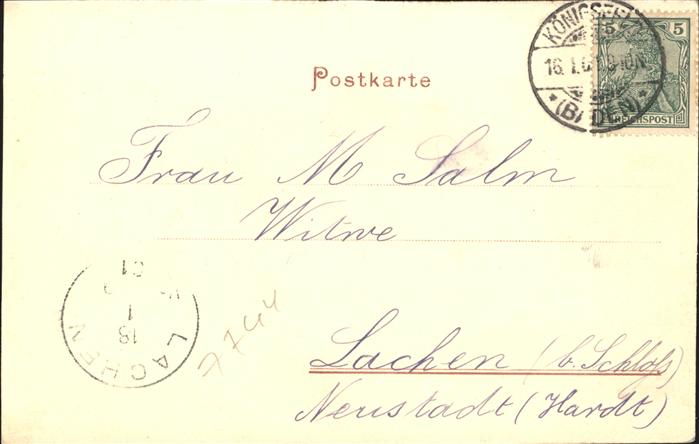 Postkarte
KÖNIGSFELD
16.1.01.9-10N.
*(BADEN)*
5 5
REICHSPOST
Frau M Salm
Witwe
Lachen (b. Schloß)
Neustadt (Hardt)
LACHEN
18
1
01
7744